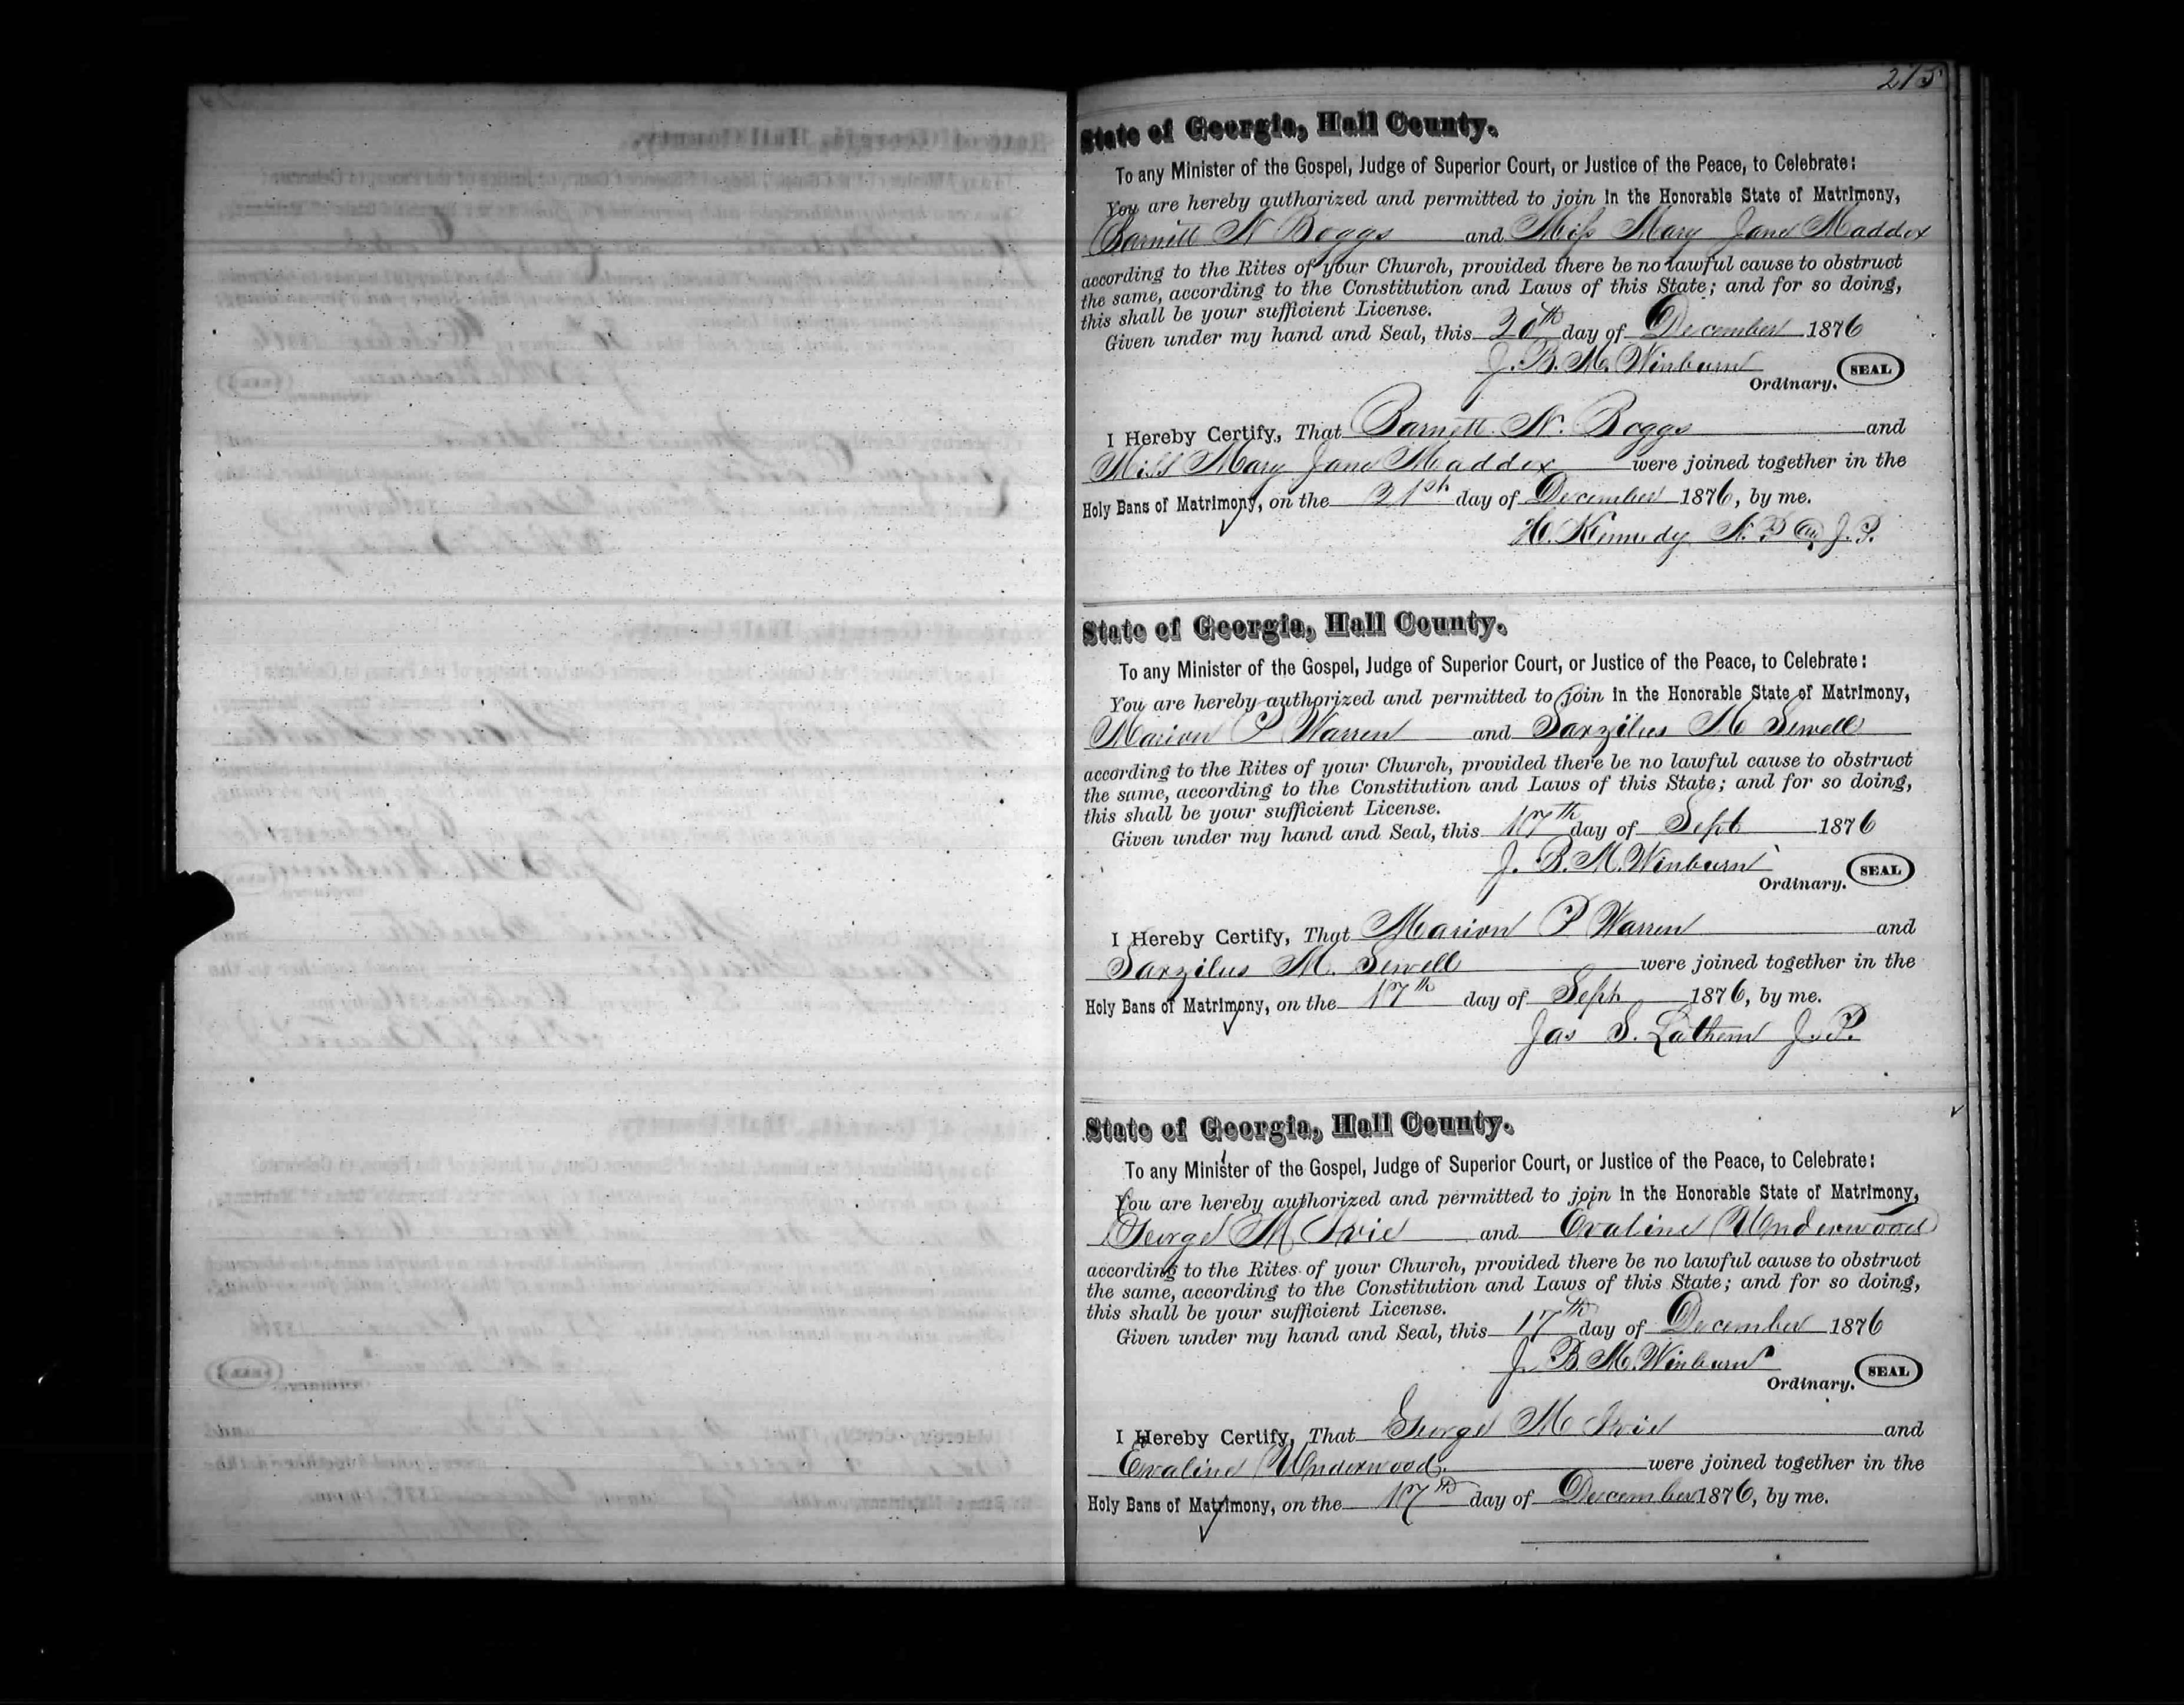 275
State of Georgia, Hall County.
To any Minister of the Gospel, Judge of Superior Court, or Justice of the Peace, to Celebrate:
You are hereby authorized and permitted to join in the Honorable State of Matrimony,
Barnett N Boggs and Miss Mary Jane Maddox
according to the Rites of your Church, provided there be no lawful cause to obstruct
the same, according to the Constitution and Laws of this State; and for so doing,
this shall be your sufficient License.
Given under my hand and Seal, this 20th day of December 1876
J. B. M. Winburn
Ordinary. SEAL
I Hereby Certify, That Barnett N. Boggs and
Miss Mary Jane Maddox were joined together in the
Holy Bans of Matrimony, on the 21st day of December 1876, by me.
H. Kennedy N. P. & J. P.
State of Georgia, Hall County.
To any Minister of the Gospel, Judge of Superior Court, or Justice of the Peace, to Celebrate:
You are hereby authorized and permitted to join in the Honorable State of Matrimony,
Marion P Warren and Sarzilus M Sewell
according to the Rites of your Church, provided there be no lawful cause to obstruct
the same, according to the Constitution and Laws of this State; and for so doing,
this shall be your sufficient License.
Given under my hand and Seal, this 17th day of Sept 1876
J. B. M. Winburn
Ordinary. SEAL
I Hereby Certify, That Marion P Warren and
Sarzilus M. Sewell were joined together in the
Holy Bans of Matrimony, on the 17th day of Sept 1876, by me.
Jas S. Lathem J. P.
State of Georgia, Hall County.
To any Minister of the Gospel, Judge of Superior Court, or Justice of the Peace, to Celebrate:
You are hereby authorized and permitted to join in the Honorable State of Matrimony,
George M Ivie and Evaline Underwood
according to the Rites of your Church, provided there be no lawful cause to obstruct
the same, according to the Constitution and Laws of this State; and for so doing,
this shall be your sufficient License.
Given under my hand and Seal, this 17th day of December 1876
J. B M. Winburn
Ordinary. SEAL
I Hereby Certify, That George M Ivie and
Evaline Underwood were joined together in the
Holy Bans of Matrimony, on the 17th day of December 1876, by me.